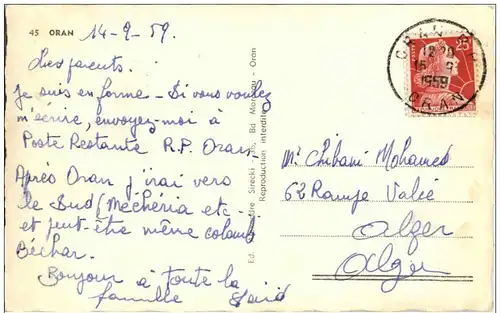 45 ORAN
14-9-59
Les parents.
Je suis en forme - Si vous voulez
m'écrire, envoyez-moi à
Poste Restante R.P. Oran,
Après Oran j'irai vers
le Sud (Mécheria etc -
et peut-être même colomb
Béchar.
Bonjour à toute la
famille Saïd
Ed. Sirecky Bd - Oran
Reproduction interdite
ORAN
25
12 30
1959
ORAN
Mr Chibani Mohamed
62 Rampe Valée
Alger
Alger